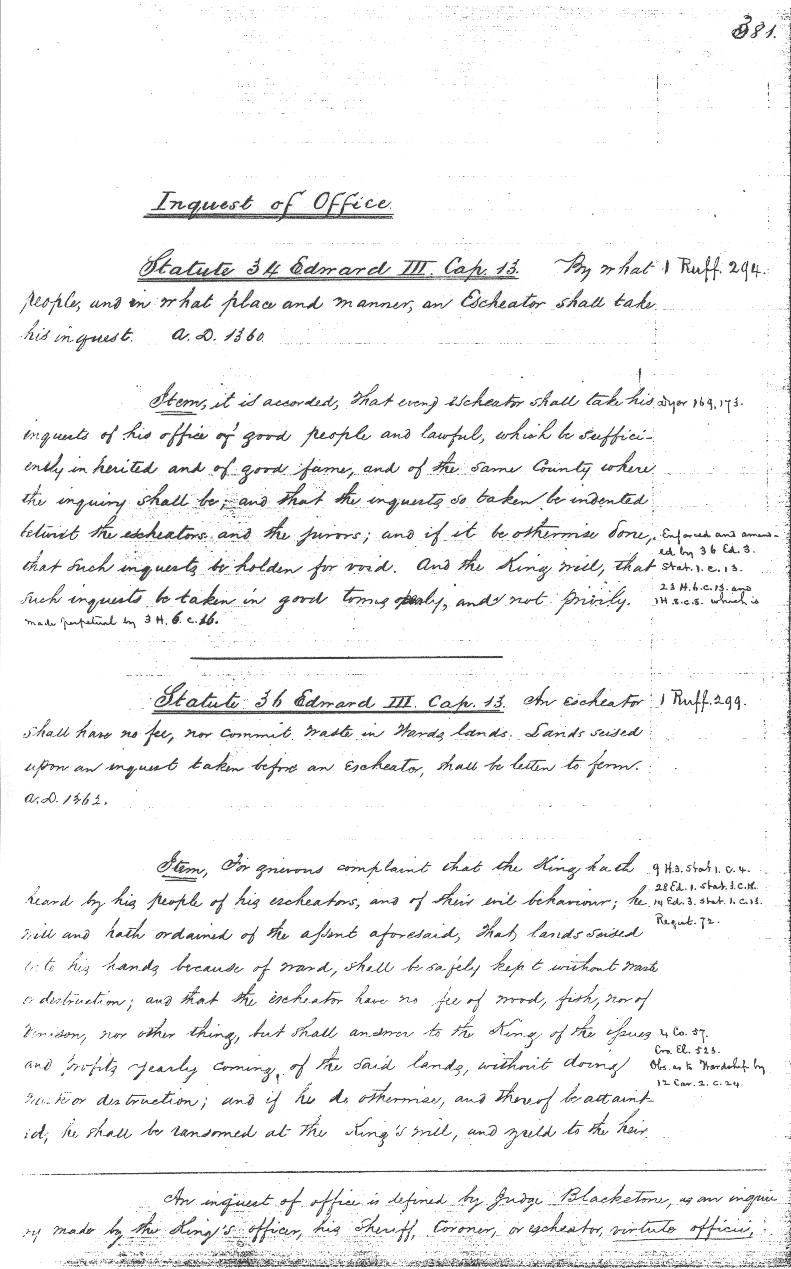 381.
Inquest of Office.
Statute 34 Edward III. Cap. 13. By what 1 Ruff. 294.
people, and in what place and manner, an Escheator shall take
his inquest. A.D. 1360.
Item, it is accorded, That every escheator shall take his Dyer 169, 173.
inquests of his office of good people and lawful, which be suffici-
ently inherited and of good fame, and of the same County where
the inquiry shall be; and that the inquests so taken be indented
betwixt the escheators and the jurors; and if it be otherwise done, Enforced and amend-
ed by 36 Ed. 3.
that such inquests be holden for void. And the King will, that Stat. 1. c. 13.
23 H. 6. c. 13. and
such inquests be taken in good towns openly, and not privily. 1 H. 8. c. 8. which is
made perpetual by 3 H. 6. c. 16.
Statute 36 Edward III. Cap. 13. An Escheator 1 Ruff. 299.
shall have no fee, nor commit waste in Wards lands. Lands seised
upon an inquest taken before an Escheator, shall be letten to ferm.
A.D. 1362.
Item, For grievous complaint that the King hath 9 H. 3. Stat 1. C. 4.
28 Ed. 1. Stat. 3. C. 18.
heard by his people of his escheators, and of their evil behaviour; he 14 Ed. 3. Stat. 1. C. 13.
Regist. 72.
will and hath ordained of the assent aforesaid, That, lands seised
into his hands because of ward, shall be safely kept without waste
or destruction; and that the escheator have no fee of wood, fish, nor of
venison, nor other thing, but shall answer to the King of the issues 4 Co. 57.
Cro. El. 523.
and profits yearly coming, of the said lands, without doing Obs. as to Wardship by
12 Car. 2. c. 24.
waste or destruction; and if he do otherwise, and thereof be attaint-
ed, he shall be ransomed at the King's will, and yield to the heir
An inquest of office is defined by Judge Blackstone, as an inqui-
ry made by the King's officer, his Sheriff, Coroner, or escheator, virtute officii,